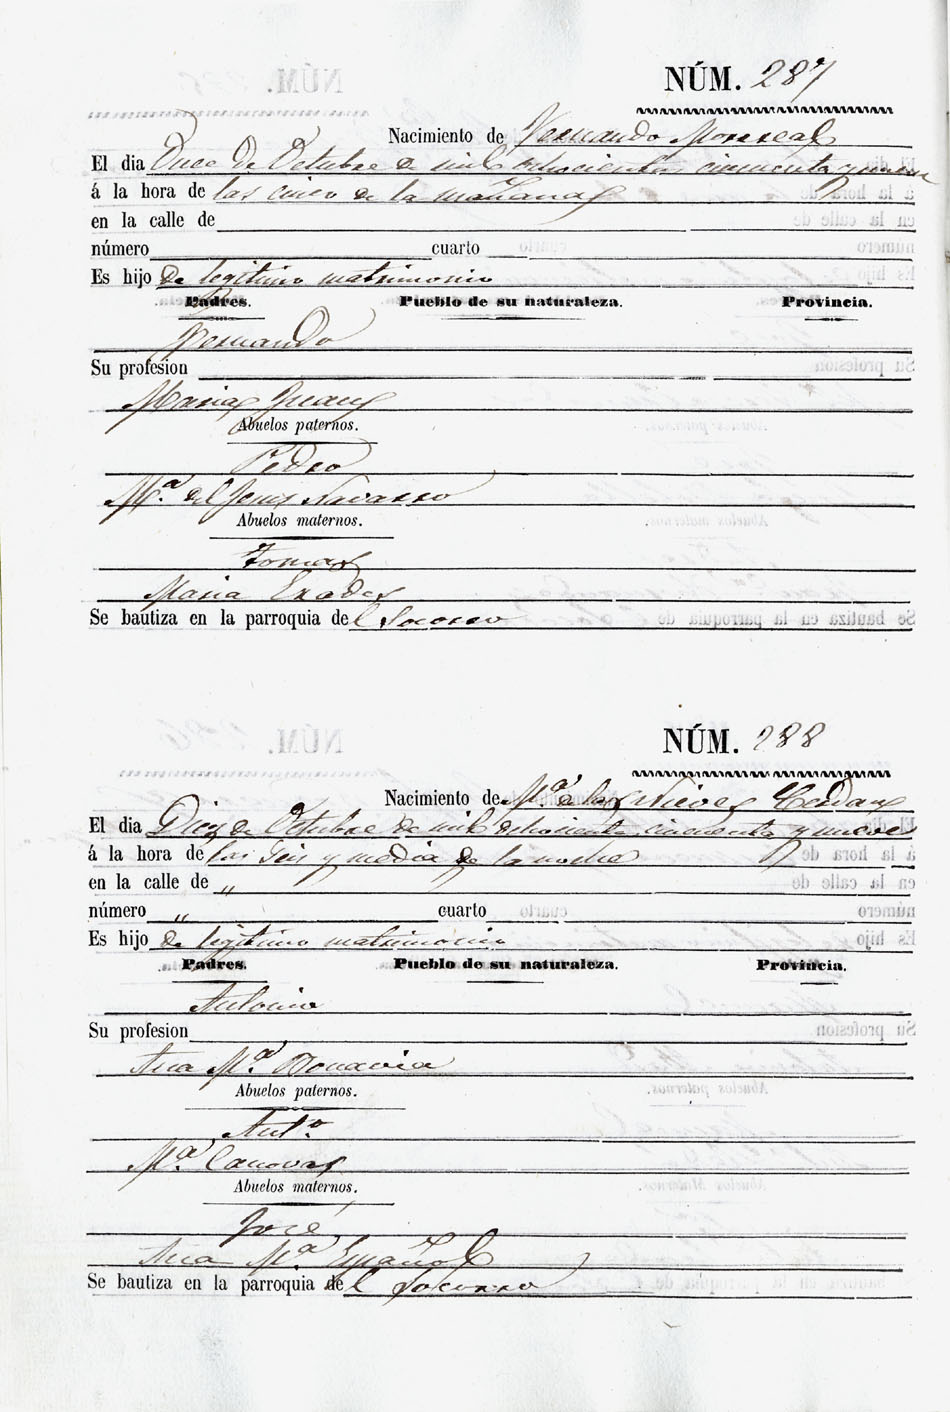 NÚM. 287
Nacimiento de Fernando Monreal
El dia Once de Octubre de mil ochocientos cincuenta y nueve
á la hora de las cinco de la mañana
en la calle de
número cuarto
Es hijo de legitimo matrimonio
Padres. Pueblo de su naturaleza. Provincia.
Fernando
Su profesion
Maria Juan
Abuelos paternos.
Pedro
M.ª del Navarro
Abuelos maternos.
Tomas
Maria Erades
Se bautiza en la parroquia del Socorro
NÚM. 288
Nacimiento de M.ª de las Nieves Cerdan
El dia Diez de Octubre de mil ochociento cincuenta y nueve
á la hora de las Seis y media de la noche
en la calle de "
número " cuarto
Es hijo de legitimo matrimonio
Padres. Pueblo de su naturaleza. Provincia.
Antonio
Su profesion
Ana M.ª Bonavia
Abuelos paternos.
Ant.º
M.ª Canovas
Abuelos maternos.
José
Ana M.ª Español
Se bautiza en la parroquia del Socorro